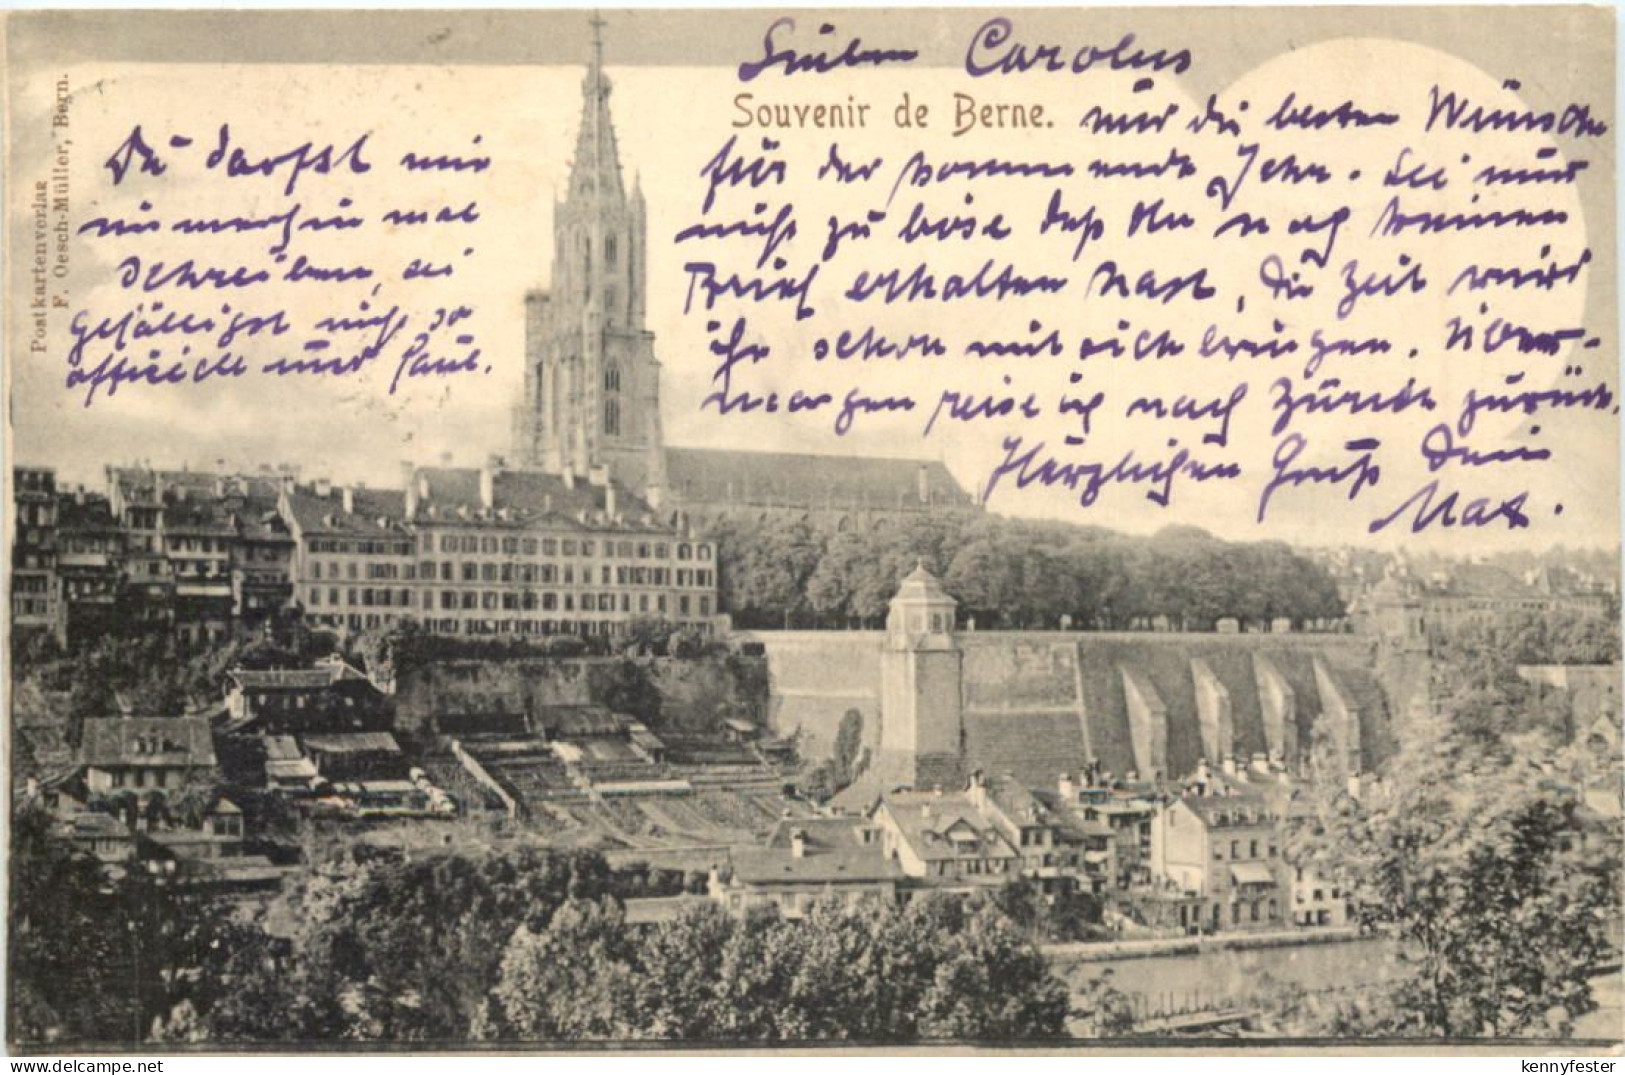 Lieber Carolus
Souvenir de Berne.
nur die besten Wünsche
für der kommende Jahr. Sei nur
nicht zu böse daß Du noch keinen
Brief erhalten hast, die Zeit wird
ihr schon mit sich bringen. Über-
morgen reise ich nach Zürich zurück.
Herzlichen Gruß Dein
Max.
Du darfst mir
immerhin mal
schreiben, sei
gefälligst nicht so
officiell und faul.
Postkartenverlag
F. Oesch-Müller, Bern.
kennyfester